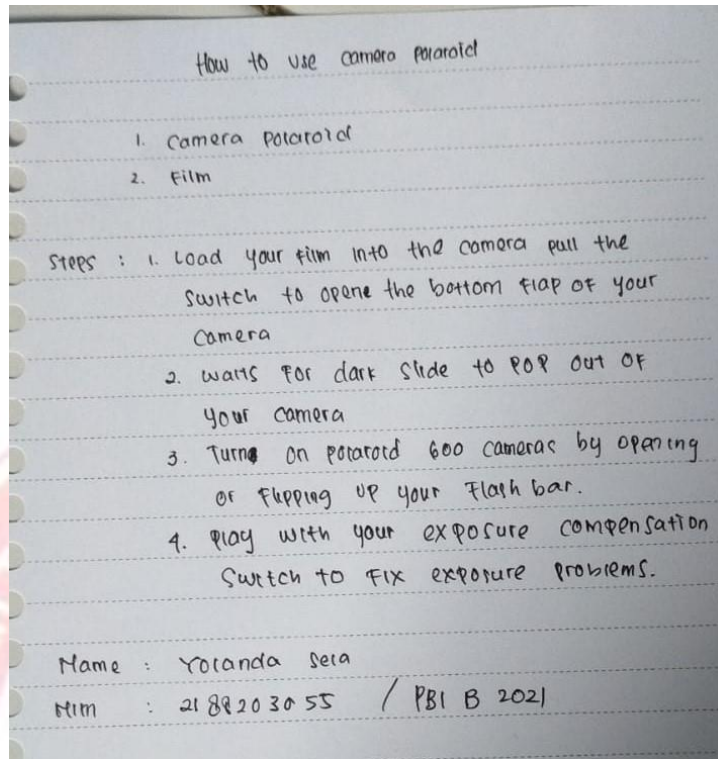 How to use camera polaroid
1. Camera polaroid
2. Film
Steps : 1. Load your film into the camera pull the
switch to opene the bottom flap of your
camera
2. waits for dark slide to pop out of
your camera
3. Turn on polaroid 600 cameras by opening
or flipping up your flash bar.
4. play with your exposure compensation
switch to fix exposure problems.
Name : Yolanda Sela
Nim : 2188203055 / PBI B 2021